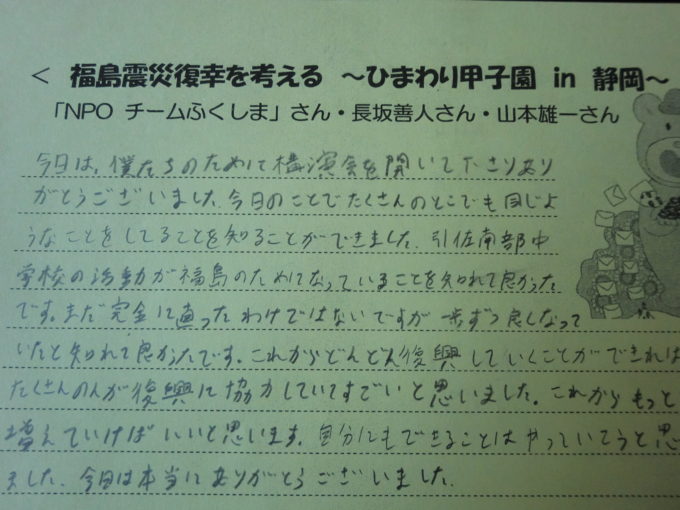 < 福島震災復幸を考える ～ひまわり甲子園 in 静岡～
「NPO チームふくしま」さん・長坂善人さん・山本雄一さん
今日は、僕たちのために構演会を開いて下さりあり
がとうございました。今日のことでたくさんのとこでも同じよ
うなことをしてることを知ることができました。引佐南部中
学校の活動が福島のためになっていることを知れて良かった
です。まだ完全に直ったわけではないですが一歩ずつ良しなって
いたと知れて良かったです。これからどんどん復興していくことができれば
たくさんの人が復興に協力していてすごいと思いました。これからもっと
増えていけばいいと思います。自分にもできることはやっていてうと思
ました。今日は本当にありがとうございました。